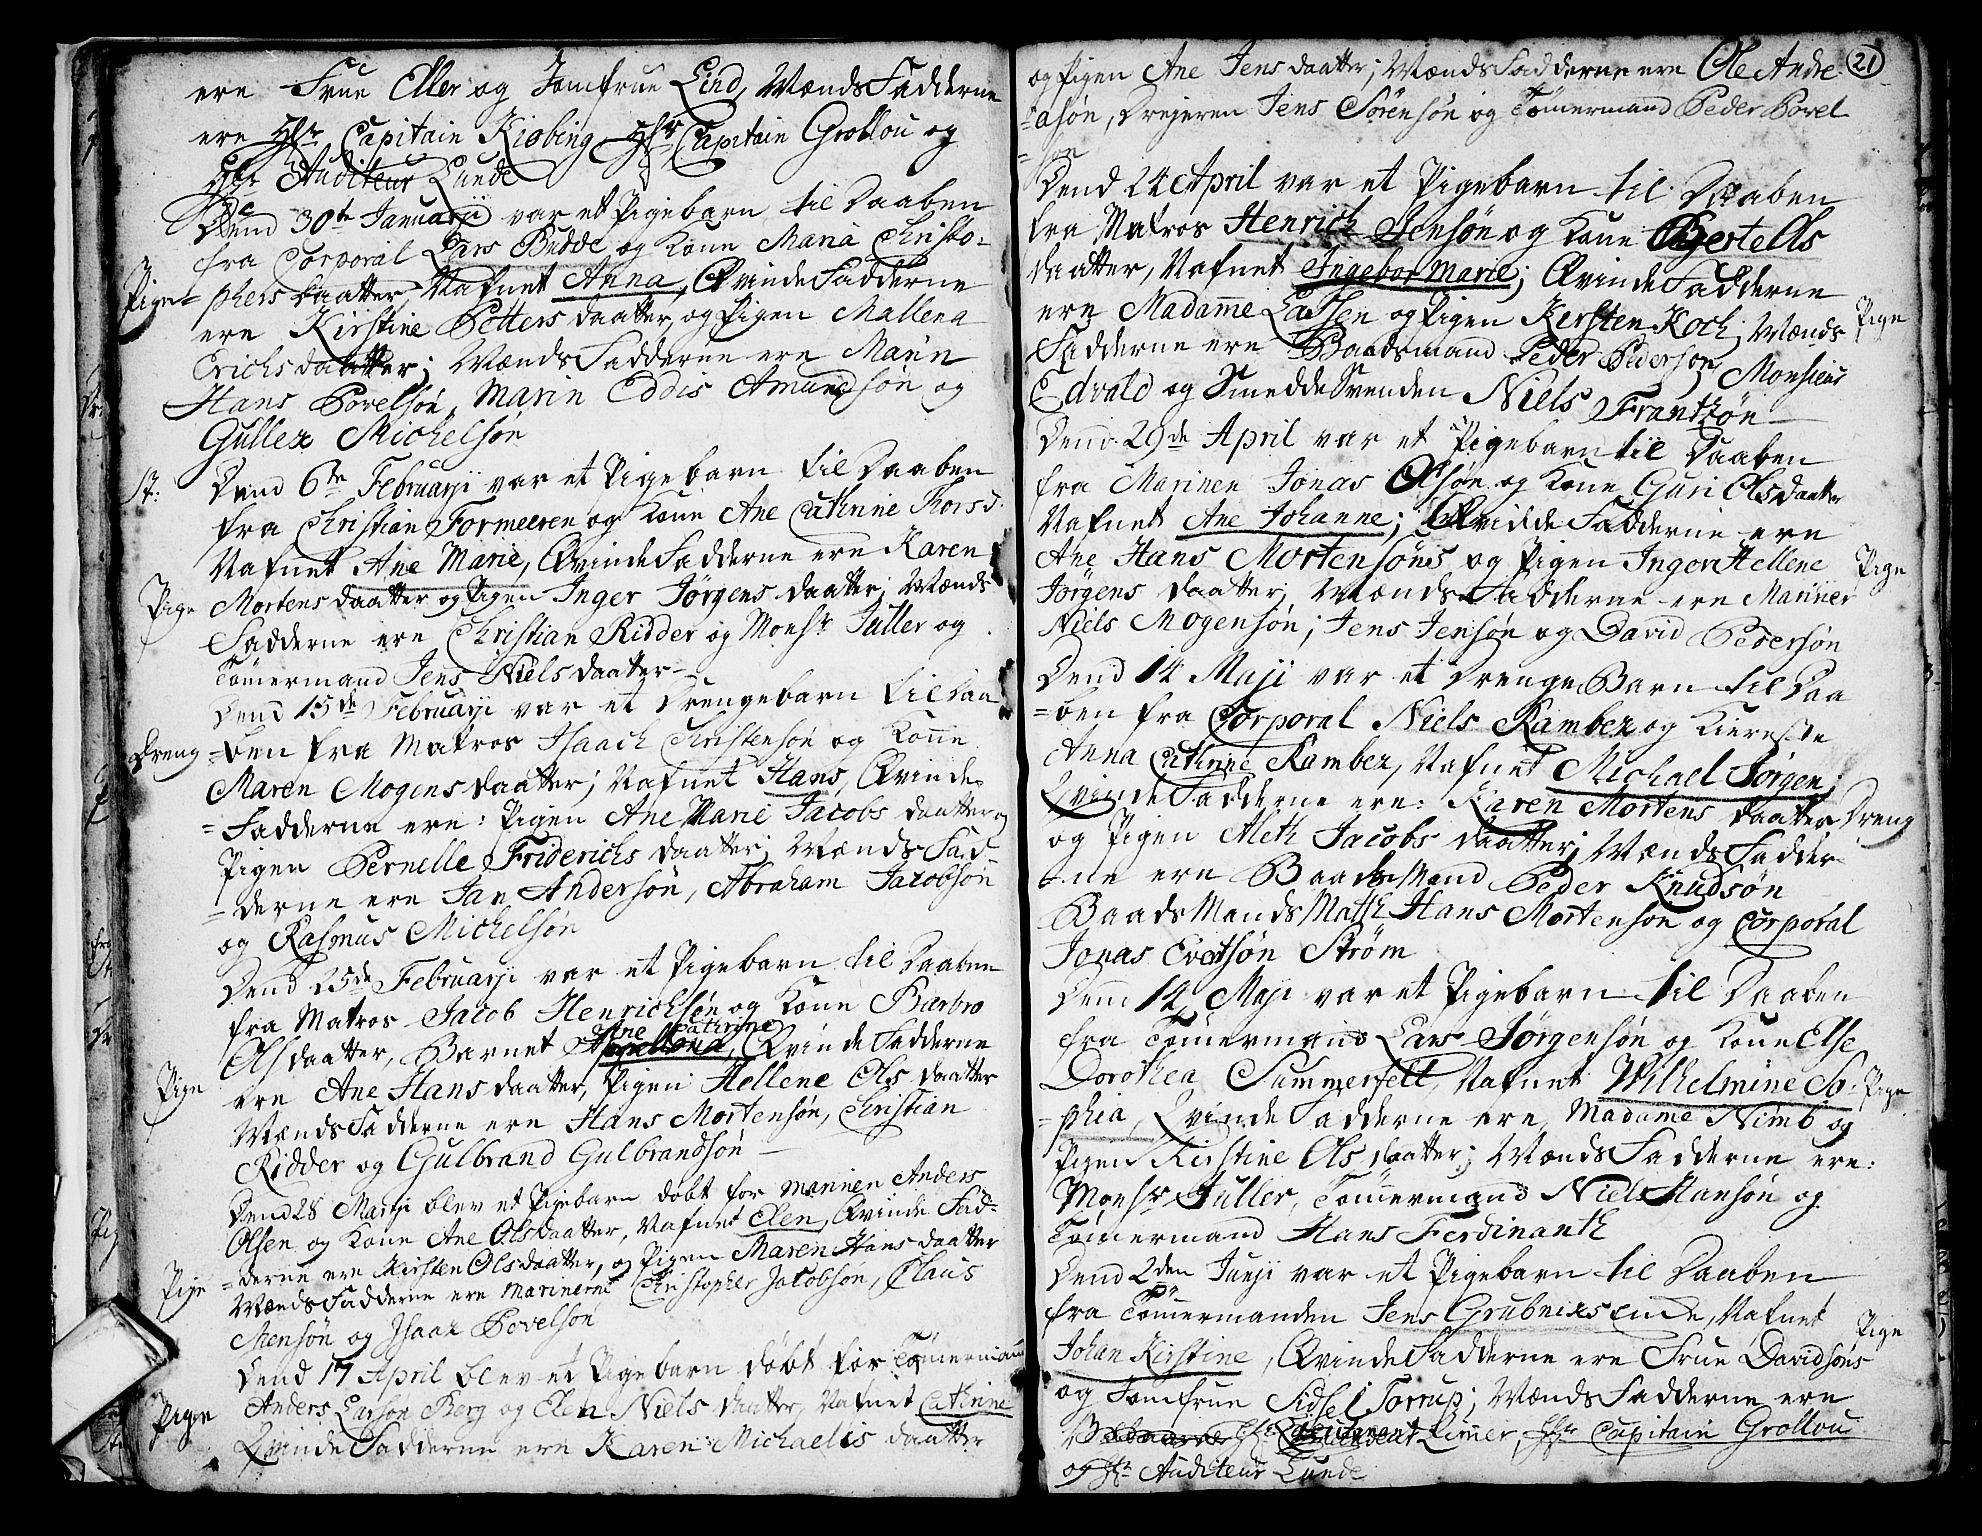 ere Frue Eller og Jomfrue Lind, MændsFadderne
ere Hr Capitain Kiøbing, Hr Capitain Grollou og
Hr Auditeur Lunde
Dend 30te Januarii var et Pigebarn til Daaben
fra Corporal Lars Budde og Kone Maria Christo-
Pige
phers daatter, Nafnet Anna, QvindeFadderne
ere Kirstine Petters daatter, og Pigen Mallena
Erichs daatter; MændsFadderne ere Marin
Hans Povelsøn, Marin Eddis Amundsøn og
Guller Michelsøn
Dend 6te Februarji var et Pigebarn til Daaben
fra Christian Formeeren og Kone Ane Cathrine Thors d.
Nafnet Ane Marie, QvindeFadderne ere Karen
Pige
Mortens daatter og Pigen Inger Jørgens daatter; Mænds
Fadderne ere Christian Ridder og Monsr Fuller og
Tømermand Jens Niels daatter
Dend 15de Februarji var et Drengebarn til Daa
Dreng
=ben fra Matros Isaach Christensøn og Kone
Maren Mogens daatter; Nafnet Hans, Qvinde
=Fadderne ere: Pigen Ane Marie Jacobs daatter og
Pigen Pernelle Friderichs daatter; MændsFad
=derne ere Jan Andersøn, Abraham Jacobsøn
og Rasmus Michelsøn
Dend 25de Februarji var et Pigebarn til Daaben
fra Matros Jacob Henrichsøn og Kone Barbro
Ane Cathrine
Ols daatter, Barnet QvindeFadderne
Pige
ere Ane Hans daatter, Pigen Hellene Ols daatter
MændsFadderne ere Hans Mortensøn, Christian
Ridder og Gulbrand Gulbrandsøn
Dend 28 Martji blev et Pigebarn døbt for Marinen Anders
Olsen og Kone Ane Olsdaatter, Nafnet Elen, Qvinde Fad=
Pige
=derne ere Kirsten Olsdaatter, og Pigen Maren Hans daatter
MændsFadderne ere Marinerne Christopher Jacobsøn, Claus
Stensøn og Isaac Povelsøn
Dend 17 April blev et Pigebarn døbt for Tømermand
Pigen
Anders Larsøn Berg og Elen Niels daatter, Nafnet Cathrine
QvindeFadderne ere Karen Michaelis daatter
21
og Pigen Ane Jens daatter; MændsFadderne ere Ole Andre
=asøn, Drejeren Jens Sørensøn og Tømermand Peder Povel
=søn
Dend 24 April var et Pigebarn til Daaben
fra Matros Henrich Jensøn og Kone Bertell Ols
daatter, Nafnet Ingebor Marie; QvindeFadderne
ere Madame Lassen og Pigen Kersten Koch; Mænds
Pige
Fadderne ere Baadsmand Peder Pedersøn, Monsieur
Edvald og SmeddeSvenden Niels Frantzøn
Dend 29de April var et Pigebarn til Daaben
fra Marinen Jonas Olsøn og Kone Guri Olsdaatter
Nafnet Ane Johanne; QvindeFadderne ere
Ane Hans Mortensøns og Pigen Ingor Hellene
Pige
Jørgens daatter; MændsFadderne ere Mariner
Niels Mogensøn; Jens Jensøn og David Pedersøn
Dend 14 Maji var et DrengeBarn til Daa
=ben fra Corporal Niels Ramber og Kiereste
Anna Cathrine Ramber, Nafnet Michael Jørgen;
QvindeFadderne ere: Karen Mortens daatter
Dreng
og Pigen Aleth Jacobs daatter; MændsFadder
=ne ere BaadsMand Peder Knudsøn
BaadsMandsMatth Hans Mortensøn og Corporal
Jonas Evertsøn Strøm
Denn 14 Maji var et Pigebarn til Daaben
fra Tømermand Lars Jørgensøn og Kone Else
Dorothea Summerfelt, Nafnet Wilhelmine So=
Pige
=phia, QvindeFadderne ere Madame Nimb og
Pigen Kirstine Ols daatter; MændsFadderne ere:
Monsr Fuller, Tømermand Niels Hansøn og
Tømermand Hans Ferdinanth
Dend 2den Junji var et Pigebarn til Daaben
fra Tømermanden Jens Grubnixs Ende, Nafnet
Pige
Johan Kirstine, QvindeFadderne ere Frue Davidsøns
og Jomfrue Sidsel Torrup; MændsFadderne ere
Hr Lieutenant Limer, Hr Capitain Grollou
og Hr Auditeur Lunde